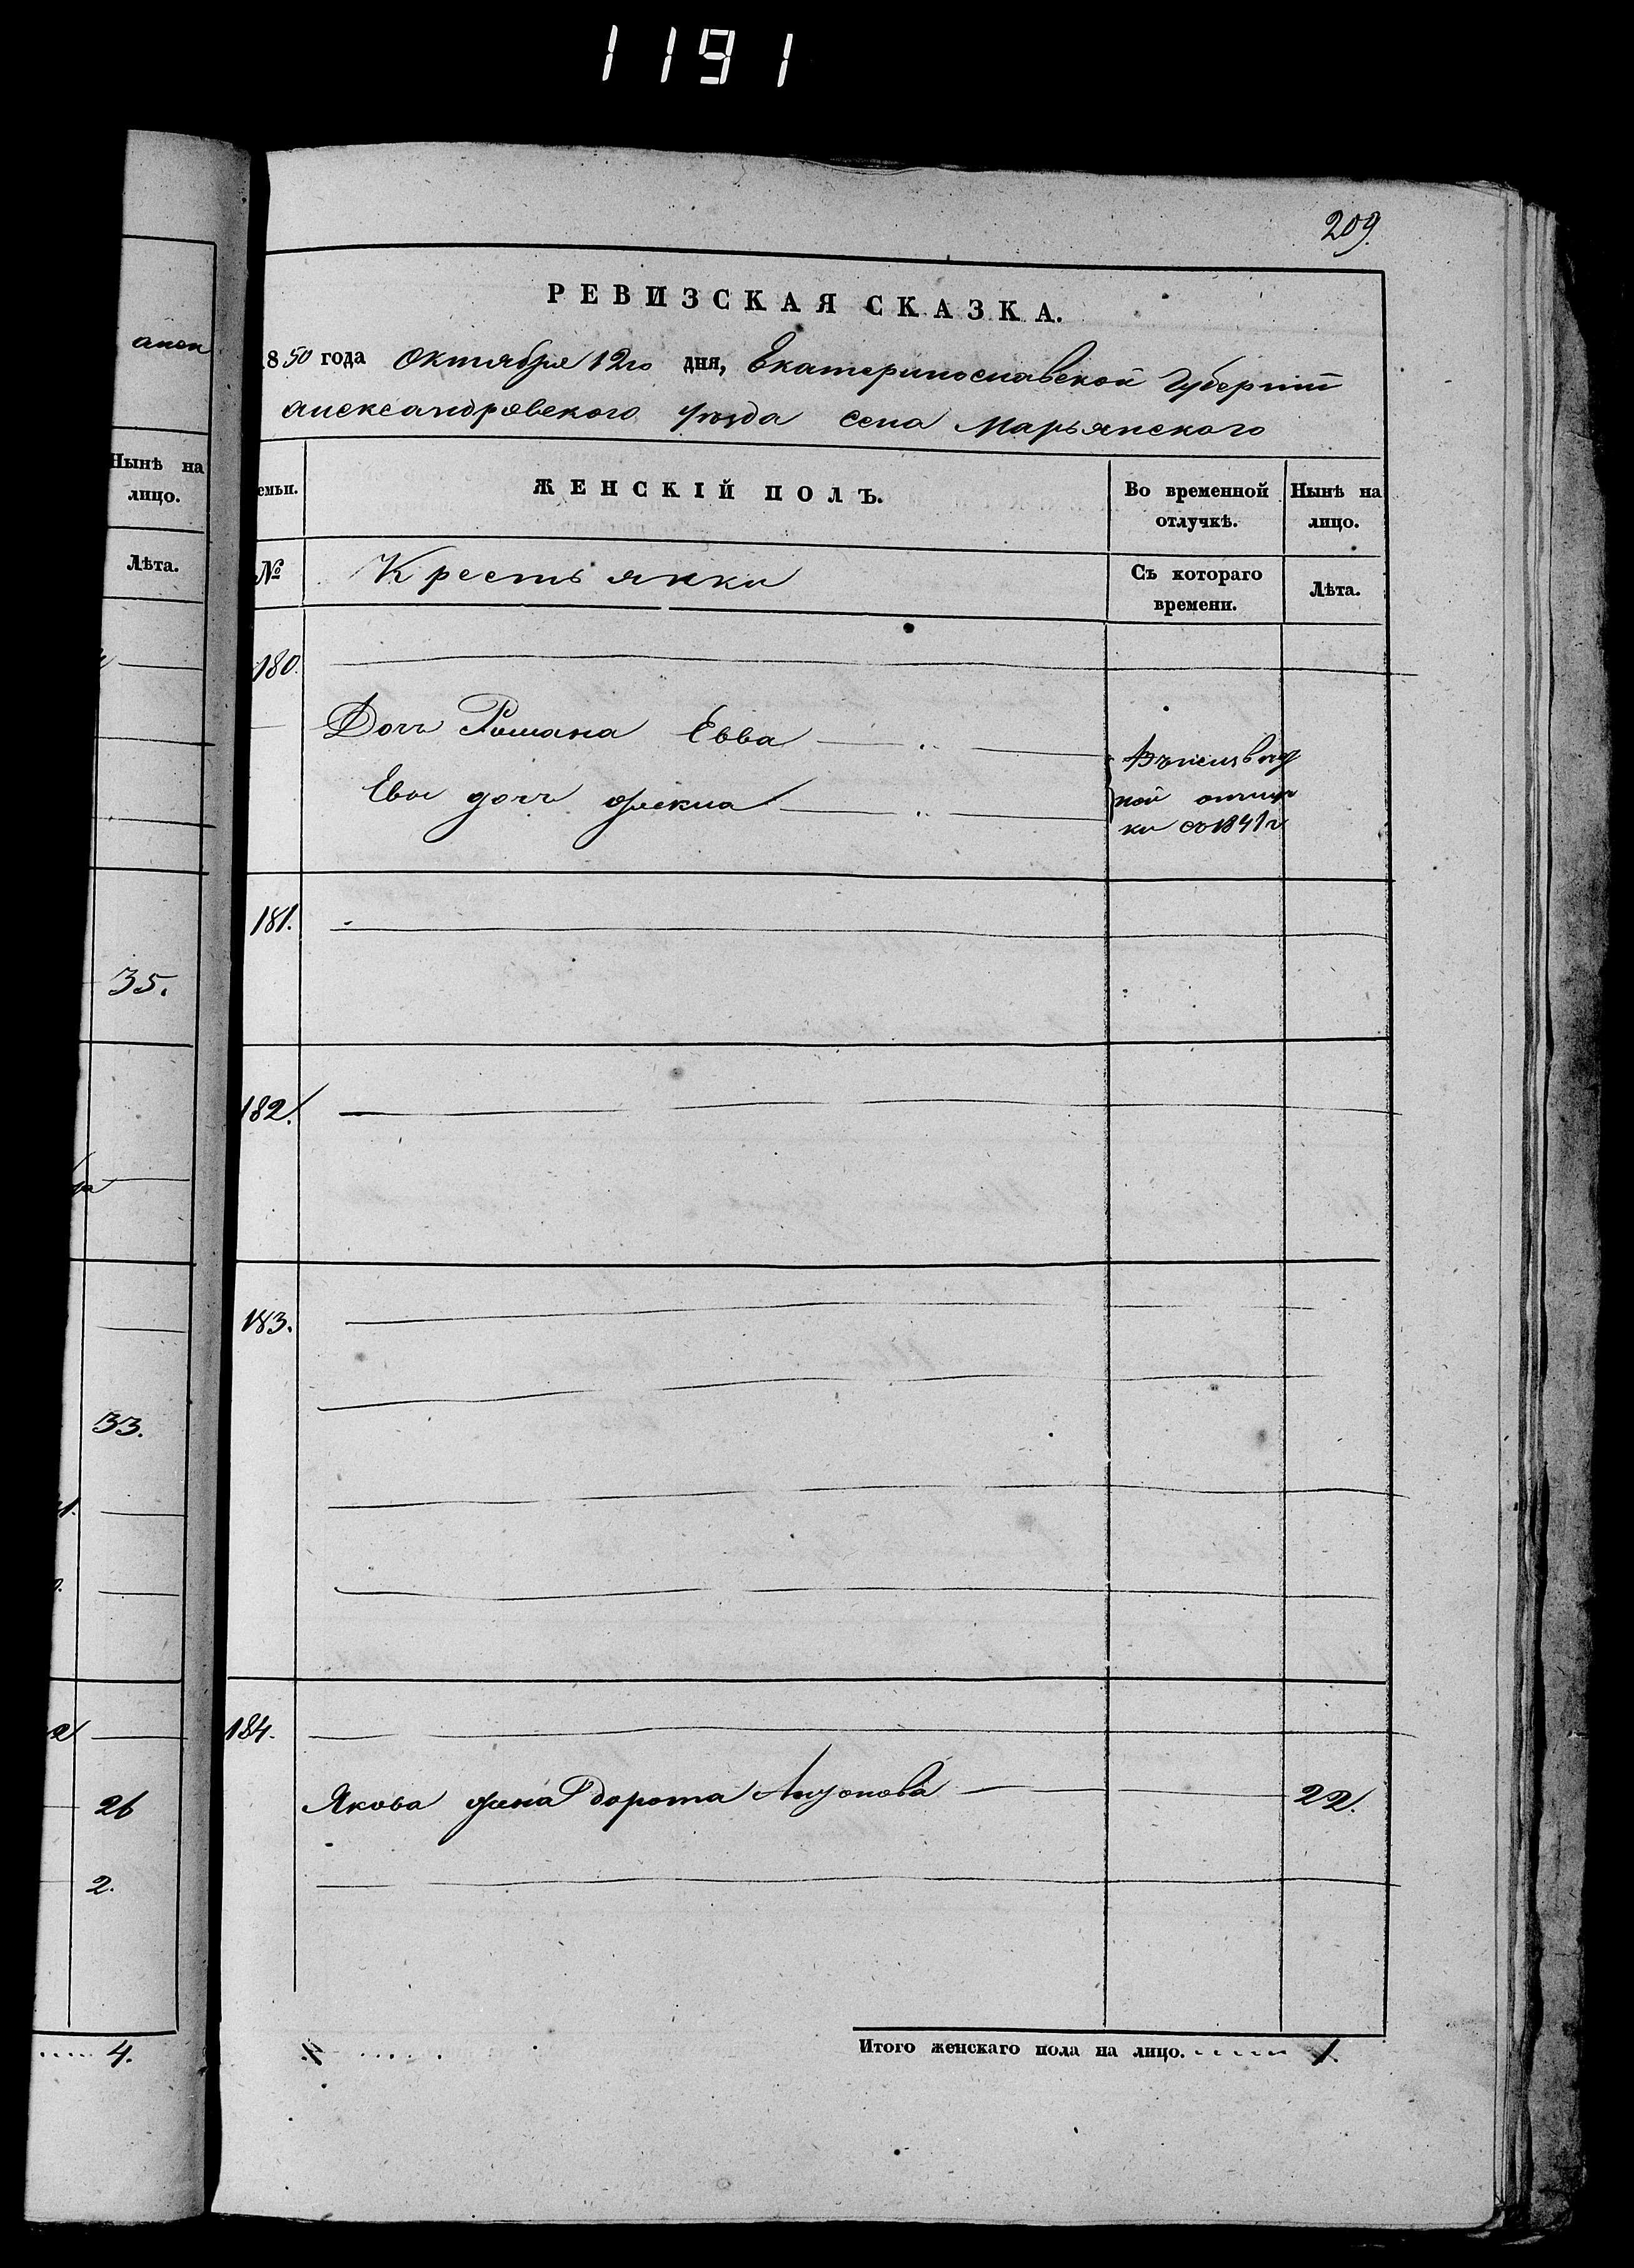 1191
209.
РЕВИЗСКАЯ СКАЗКА.
1850 года Октября 12го дня, Екатеринославской Губернии
Александровского Уезда Села Марьянского
анск
Нынѣ на
лицо.
Лѣта.
емьи.
ЖЕНСКІЙ ПОЛЪ.
Во временной
отлучкѣ.
Нынѣ на
лицо.
№
Крестьянки
Съ котораго
времени.
Лѣта.
180.
Дочь Романа Евва
Евы дочь Фекла
ной отлуч
ки съ 1841 г
181.
35.
182.
183.
33.
184.
Якова жена Дорота Антонова 22.
26
2.
4.
Итого женскаго пола на лицо. 1.